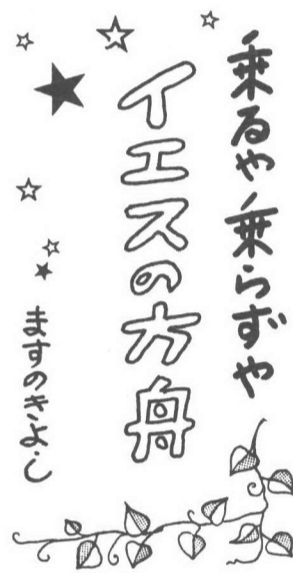 乗るや乗らずや
イエスの方舟
ますのきよし